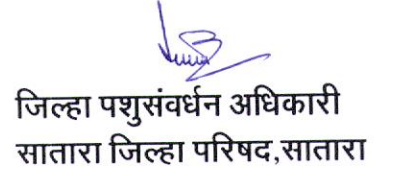 जिल्हा पशुसंवर्धन अधिकारी
सातारा जिल्हा परिषद,सातारा